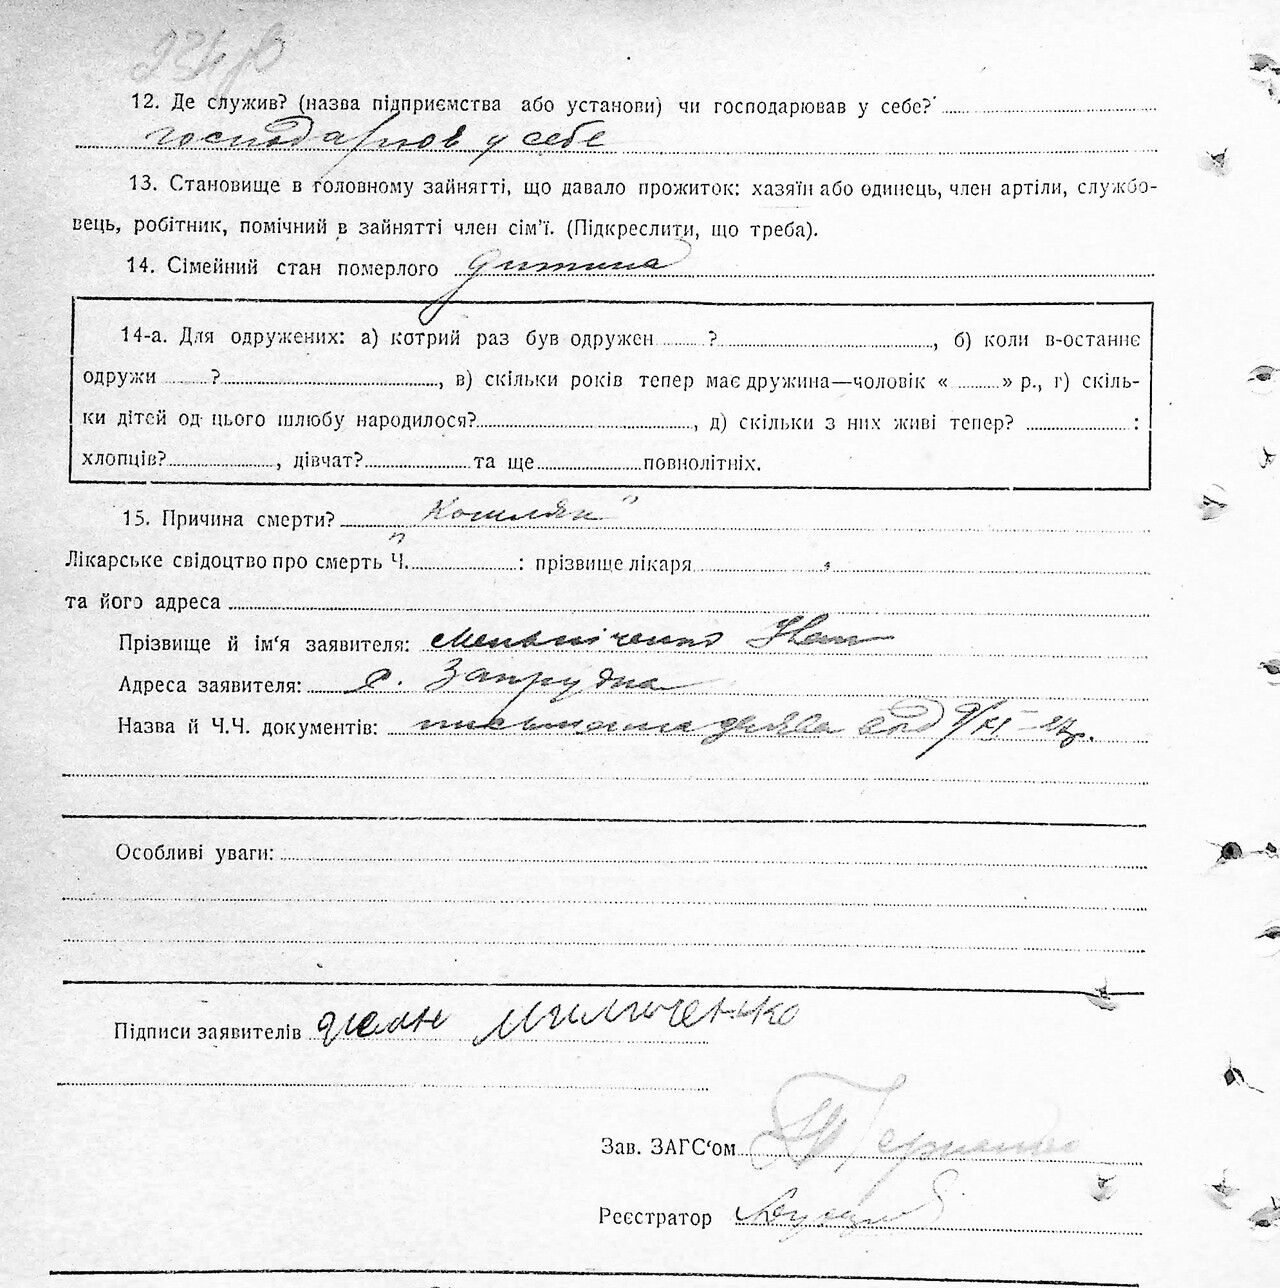 12. Де служив? (назва підприємства або установи) чи господарював у себе?
господарював у себе
13. Становище в головному зайнятті, що давало прожиток: хазяїн або одинець, член артіли, службо-
вець, робітник, помічний в зайнятті член сім'ї. (Підкреслити, що треба).
14. Сімейний стан померлого дитина
14-а. Для одружених: а) котрий раз був одружен ? , б) коли в-останнє
одружи ? , в) скільки років тепер має дружина—чоловік « » р., г) скіль-
ки дітей од цього шлюбу народилося? , д) скільки з них живі тепер? :
хлопців? , дівчат? та ще повнолітніх.
15. Причина смерти?
Лікарське свідоцтво про смерть Ч. : прізвище лікаря
та його адреса
Прізвище й ім‘я заявителя: Мельніченко Іван
Адреса заявителя: с. Запрудна
Назва й Ч.Ч. документів: письмова заява від 9/XI
Особливі уваги:
Підписи заявителів
Зав. ЗАГС‘ом
Реєстратор